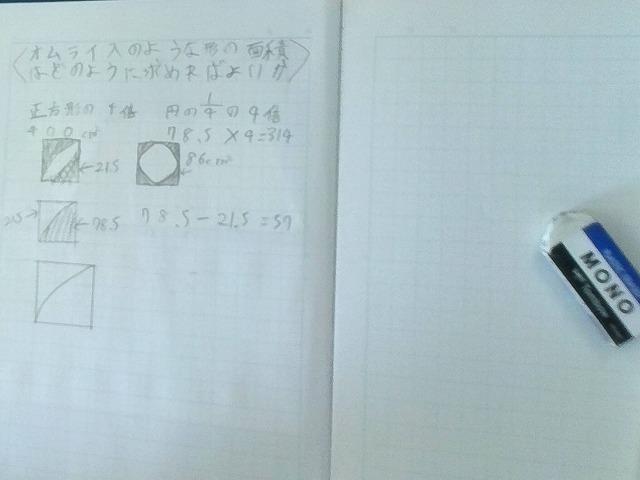 〈オムライスのような形の面積
はどのように求めればよいか〉
正方形の4倍 円の1/4の4倍
400cm² 78.5×4=314
←21.5 86cm²
21.5→ ←78.5 78.5-21.5=57
MONO